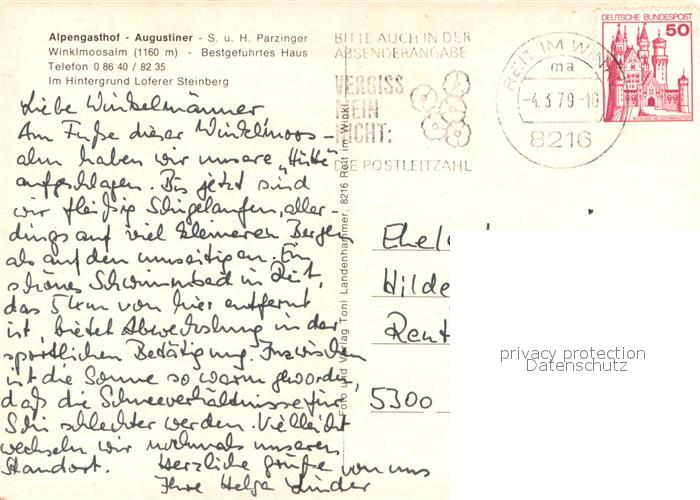 Alpengasthof - Augustiner - S. u. H. Parzinger
Winklmoosalm (1160 m) - Bestgeführtes Haus
Telefon 0 86 40 / 82 35
Im Hintergrund Loferer Steinberg
Liebe Winkelmänner
Am Fuße dieser Winkelmoos-
alm haben wir unsere "Hütte"
aufgeschlagen. Bis jetzt sind
wir fleißig Skigelaufen, aller-
dings auf viel kleineren Bergen
als auf den umseitigen. Ein
schönes Schwimmbad in Reit,
das 5 km von hier entfernt
ist, bietet Abwechslung in der
sportlichen Betätigung. Inzwischen
ist die Sonne so warm geworden,
daß die Schneeverhältnisse für
Ski schlechter werden. Vielleicht
wechseln wir nochmals unseren
Standort. Herzliche Grüße von uns
Ihre Helga
Foto und Verlag Toni Landenhammer, 8216 Reit im Winkl
BITTE AUCH IN DER
ABSENDERANGABE
VERGISS
MEIN
NICHT:
DIE POSTLEITZAHL
REIT IM WINKL
ma
-4.3.79-10
8216
DEUTSCHE BUNDESPOST
50
SCHLOSS NEUSCHWANSTEIN
Hilde
Rent
5300
privacy protection
Datenschutz